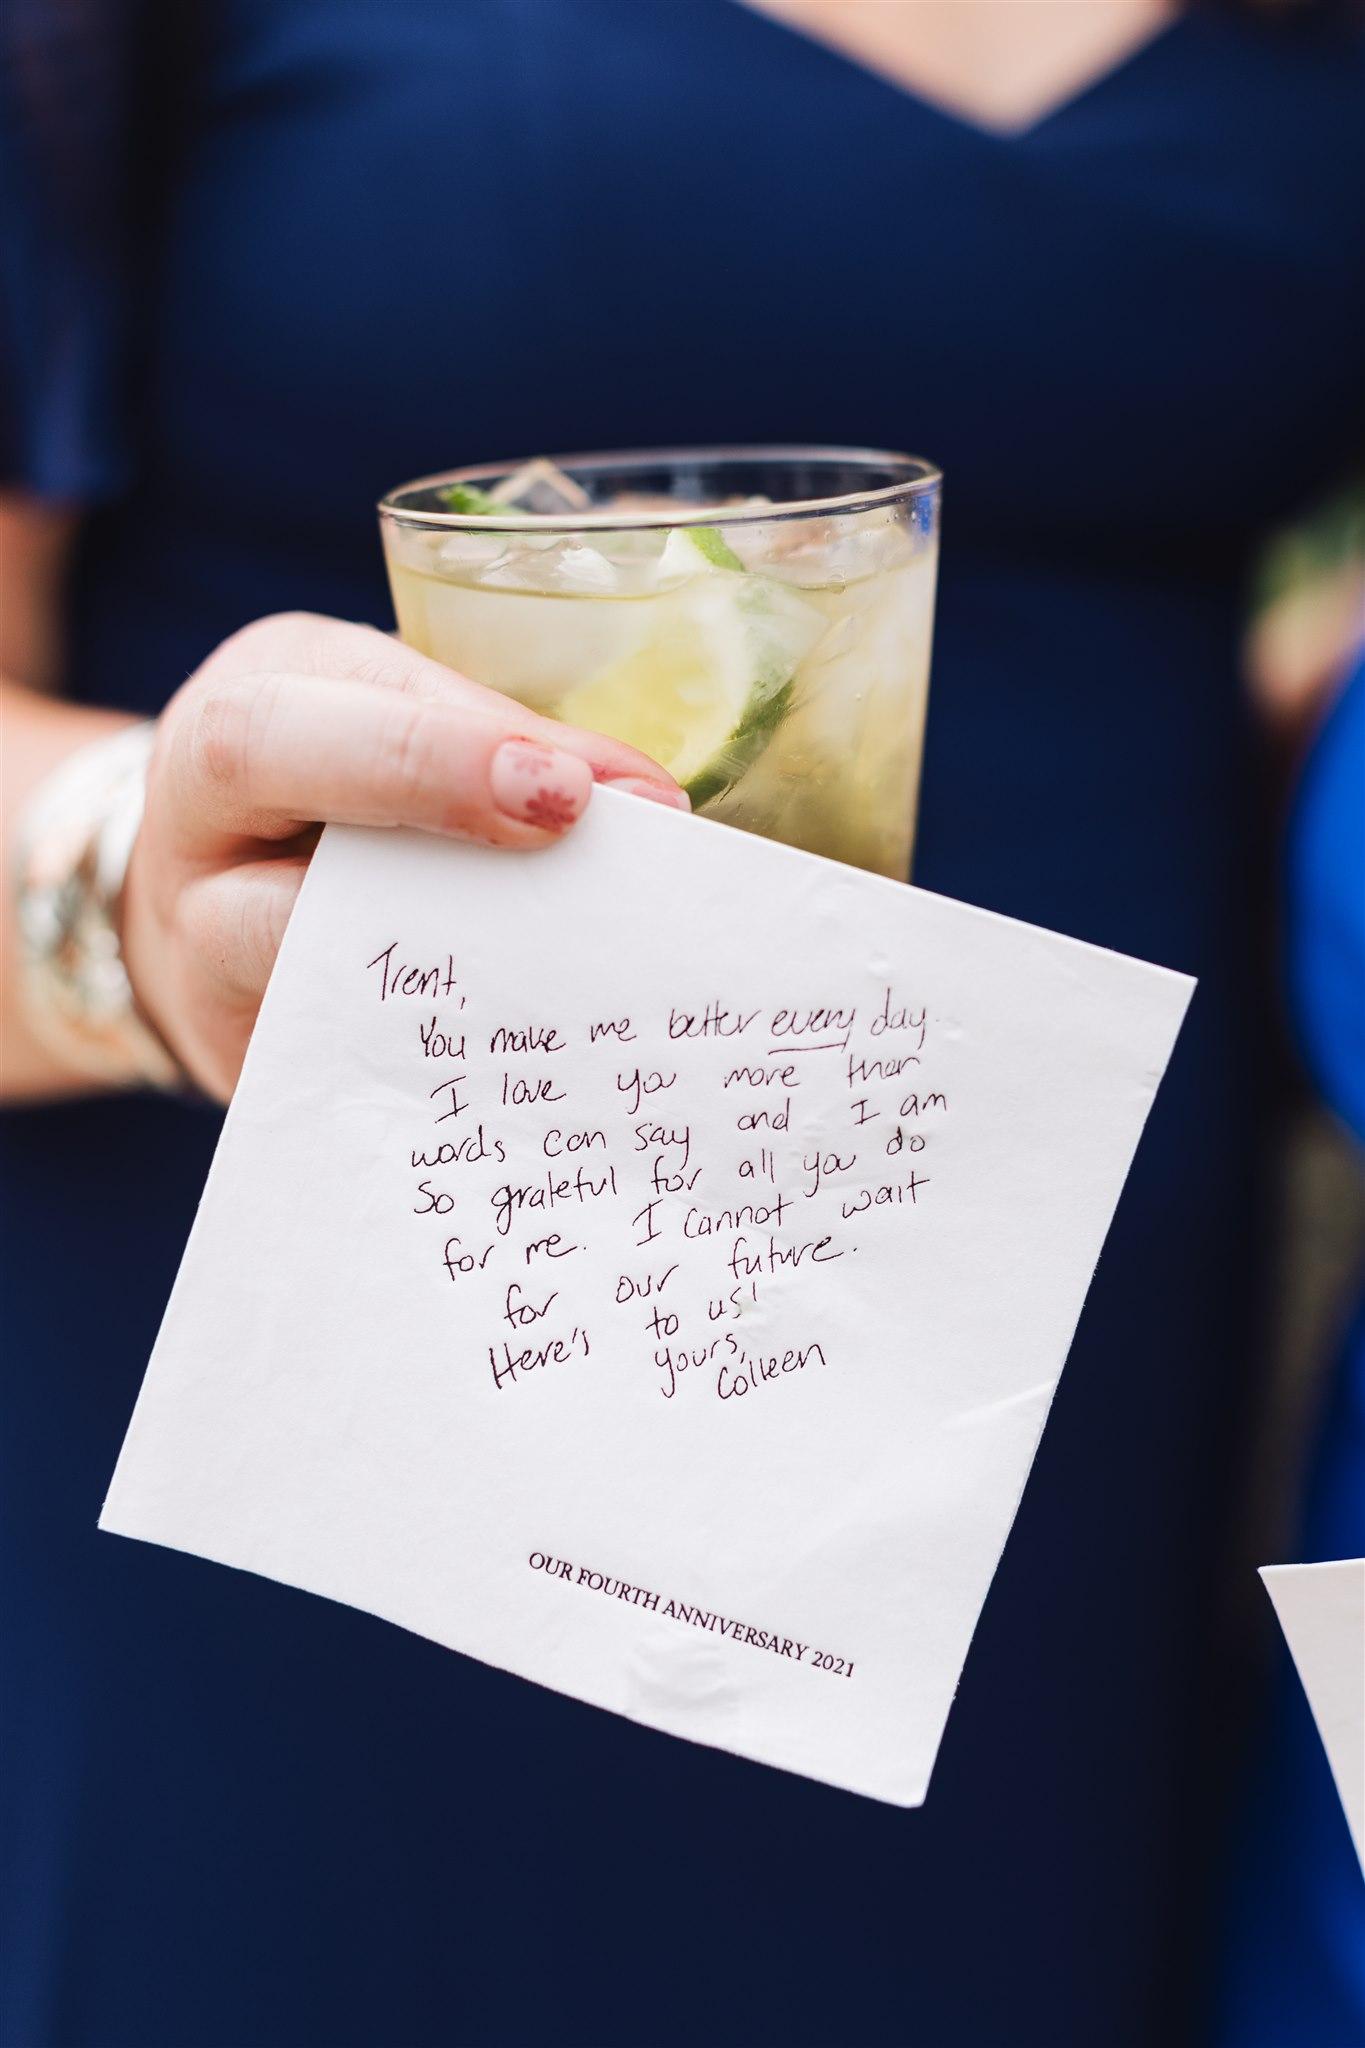 Trent,
You make me better every day.
I love you more than
words can say and I am
so grateful for all you do
for me. I cannot wait
for our future.
Here's to us!
yours,
Colleen
OUR FOURTH ANNIVERSARY 2021